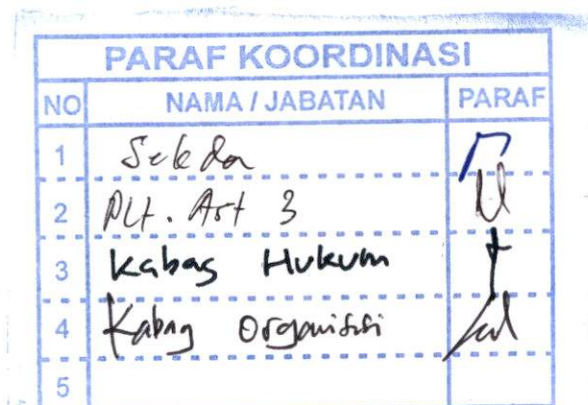 PARAF KOORDINASI
NO NAMA / JABATAN PARAF
1 Sekda
2 Plt. Ast 3
3 Kabag Hukum
4 Kabag Organisasi
5